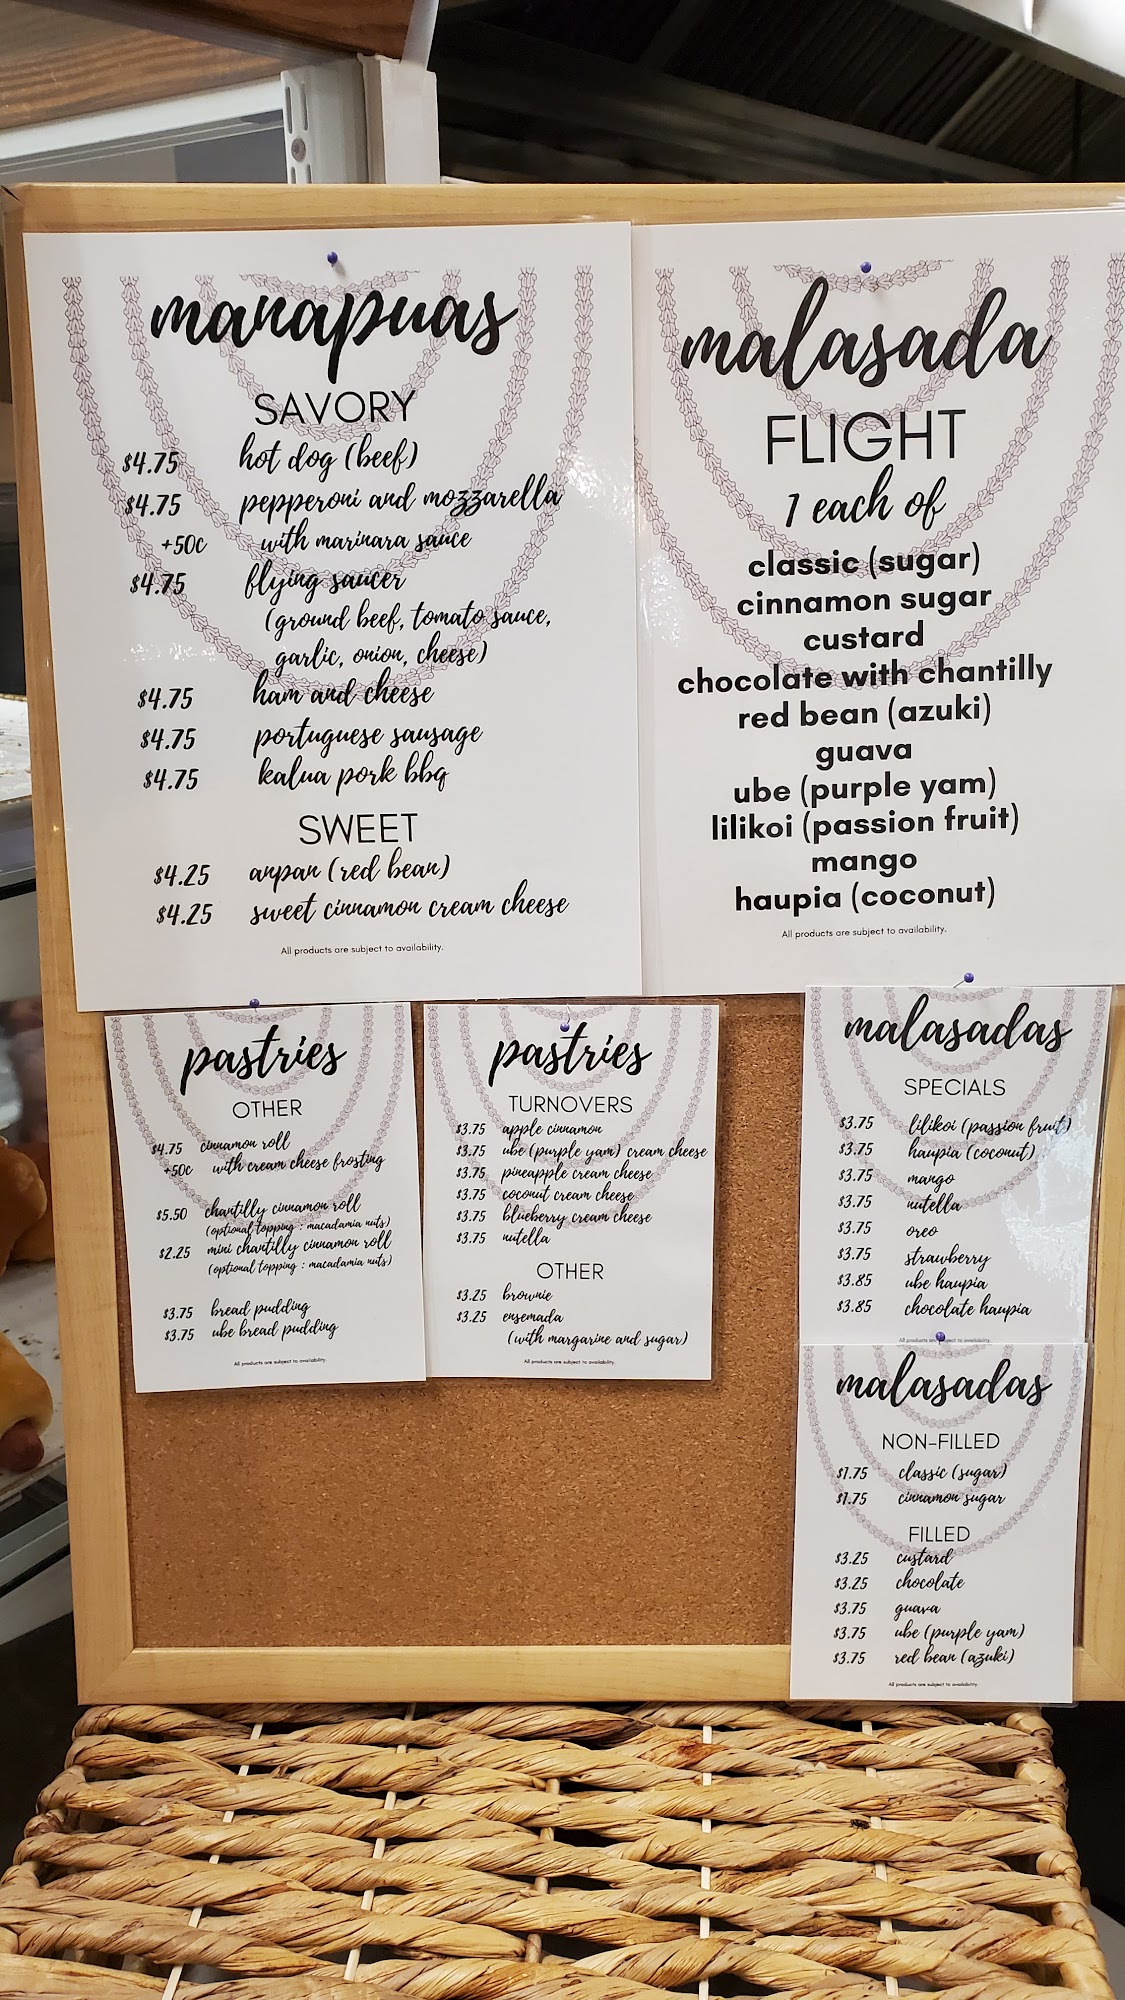 manapuas
SAVORY
$4.75 hot dog (beef)
$4.75 pepperoni and mozzarella
+50c with marinara sauce
$4.75 flying saucer
(ground beef, tomato sauce,
garlic, onion, cheese)
$4.75 ham and cheese
$4.75 portuguese sausage
$4.75 kalua pork bbq
SWEET
$4.25 anpan (red bean)
$4.25 sweet cinnamon cream cheese
All products are subject to availability.
malasada
FLIGHT
1 each of
classic (sugar)
cinnamon sugar
custard
chocolate with chantilly
red bean (azuki)
guava
ube (purple yam)
lilikoi (passion fruit)
mango
haupia (coconut)
All products are subject to availability.
pastries
OTHER
$4.75 cinnamon roll
+50c with cream cheese frosting
$5.50 chantilly cinnamon roll
(optional topping : macadamia nuts)
$2.25 mini chantilly cinnamon roll
(optional topping : macadamia nuts)
$3.75 bread pudding
$3.75 ube bread pudding
All products are subject to availability.
pastries
TURNOVERS
$3.75 apple cinnamon
$3.75 ube (purple yam) cream cheese
$3.75 pineapple cream cheese
$3.75 coconut cream cheese
$3.75 blueberry cream cheese
$3.75 nutella
OTHER
$3.25 brownie
$3.25 ensemada
(with margarine and sugar)
All products are subject to availability.
malasadas
SPECIALS
$3.75 lilikoi (passion fruit)
$3.75 haupia (coconut)
$3.75 mango
$3.75 nutella
$3.75 oreo
$3.75 strawberry
$3.85 ube haupia
$3.85 chocolate haupia
All products are subject to availability.
malasadas
NON-FILLED
$1.75 classic (sugar)
$1.75 cinnamon sugar
FILLED
$3.25 custard
$3.25 chocolate
$3.75 guava
$3.75 ube (purple yam)
$3.75 red bean (azuki)
All products are subject to availability.